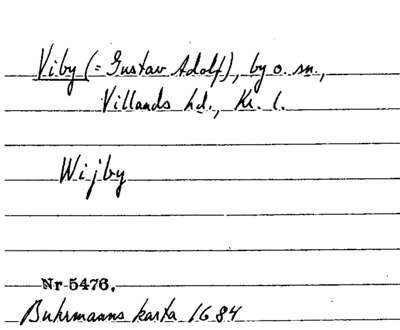 Viby (= Gustav Adolf), by o. sn.,
Villands hd., Kr. l.
Wijby
Nr 5476.
Buhrmanns karta 1684